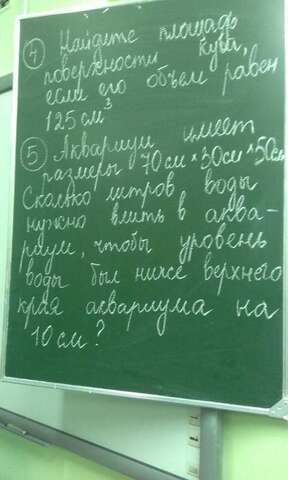 ④ Найдите площадь
поверхности куба,
если его объем равен
125 см³
⑤ Аквариум имеет
размеры 70см × 30см × 50см
Сколько литров воды
нужно влить в аква-
риум, чтобы уровень
воды был ниже верхнего
края аквариума на
10 см?